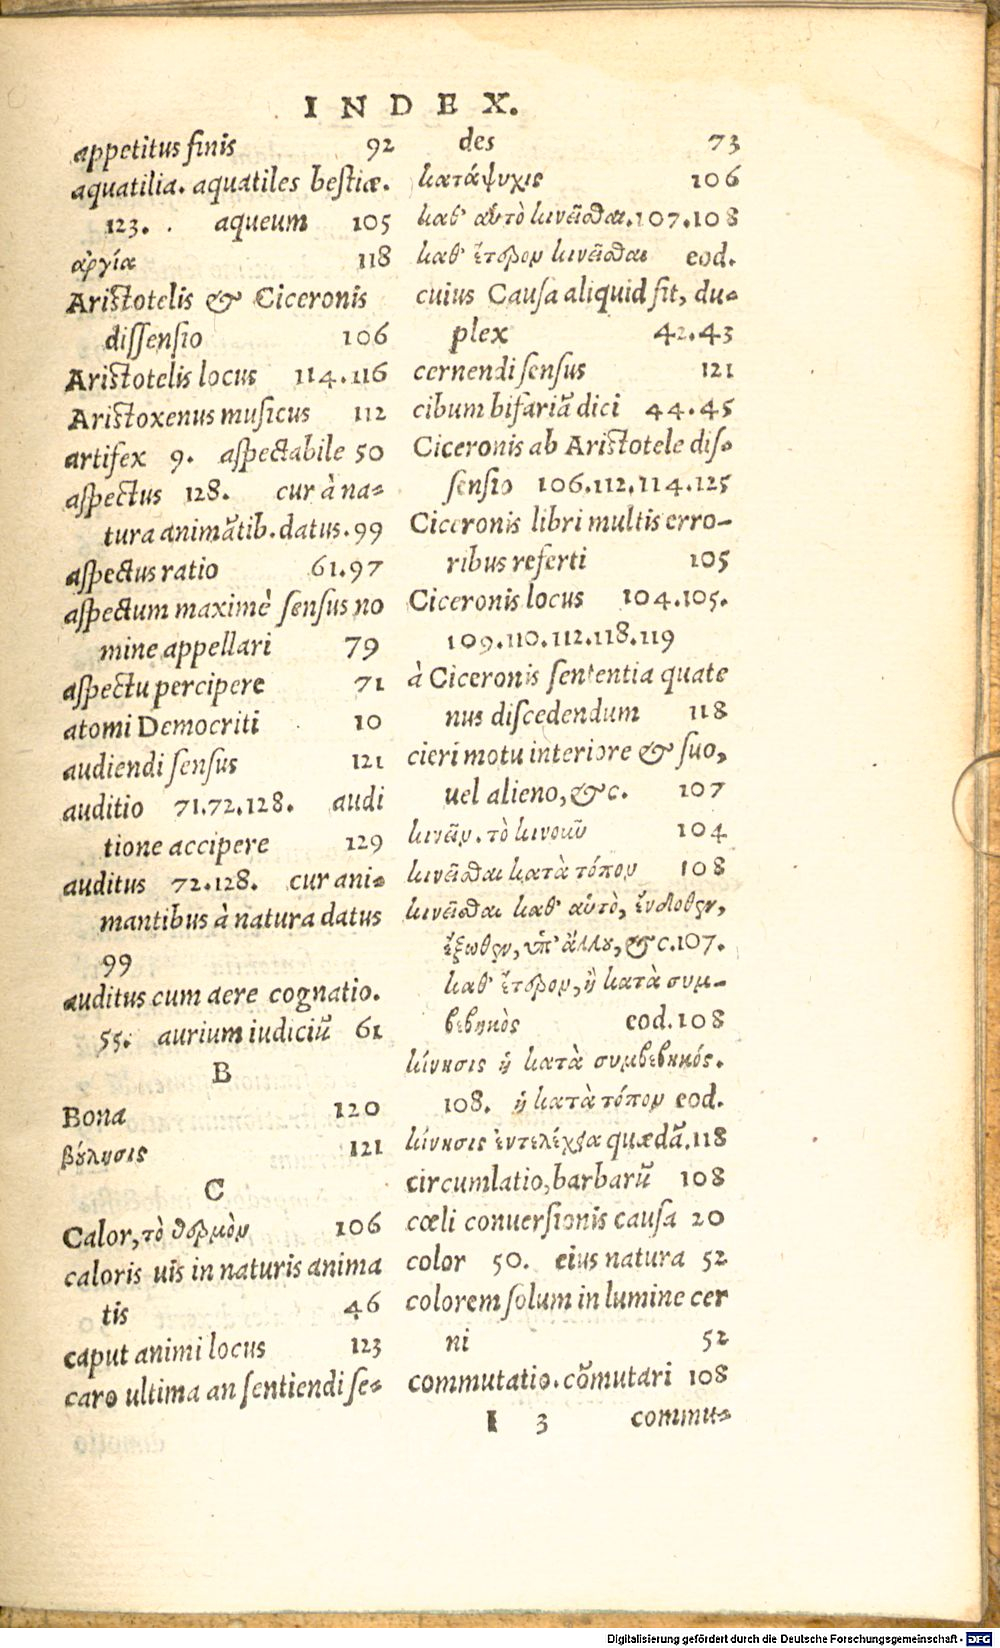 INDEX.
appetitus finis 92
aquatilia. aquatiles bestiæ.
123. . aqueum 105
ἀργία 118
Aristotelis & Ciceronis
dissensio 106
Aristotelis locus 114.116
Aristoxenus musicus 112
artifex 9. aspectabile 50
aspectus 128. cur à na=
tura animãtib. datus. 99
aspectus ratio 61.97
aspectum maximè sensus no
mine appellari 79
aspectu percipere 71
atomi Democriti 10
audiendi sensus 121
auditio 71.72.128. audi
tione accipere 129
auditus 72.128. cur ani=
mantibus à natura datus
99
auditus cum aere cognatio.
55. aurium iudiciũ 61
B
Bona 120
βύλησις 121
C
Calor, τὸ θερμὸν 106
caloris uis in naturis anima
tis 46
caput animi locus 123
caro ultima an sentiendi se=
des 73
κατάψυχις 106
καθ' αὑτὸ κινεῖσθαι. 107.108
καθ' ἕτερον κινεῖσθαι eod.
cuius Causa aliquid sit, du=
plex 42.43
cernendi sensus 121
cibum bifariã dici 44.45
Ciceronis ab Aristotele dis=
sensio 106.112.114.125
Ciceronis libri multis erro-
ribus referti 105
Ciceronis locus 104.105.
109.110.112.118.119
à Ciceronis sententia quate
nus discedendum 118
cieri motu interiore & suo,
uel alieno, &c. 107
κινεῖν. τὸ κινοῦν 104
κινεῖσθαι κατὰ τόπον 108
κινεῖσθαι καθ' αὑτὸ, ἔνδοθεν,
ἔξωθεν, ὑπ' ἄλλου, &c. 107.
καθ' ἕτερον, ἢ κατὰ συμ-
βεβηκὸς eod. 108
κίνησις ἡ κατὰ συμβεβηκός.
108. ἡ κατὰ τόπον eod.
κίνησις ἐντελέχεια quædã. 118
circumlatio, barbarũ 108
cœli conuersionis causa 20
color 50. eius natura 52
colorem solum in lumine cer
ni 52
commutatio. cõmutari 108
I 3 commu=
Digitalisierung gefördert durch die Deutsche Forschungsgemeinschaft - DFG